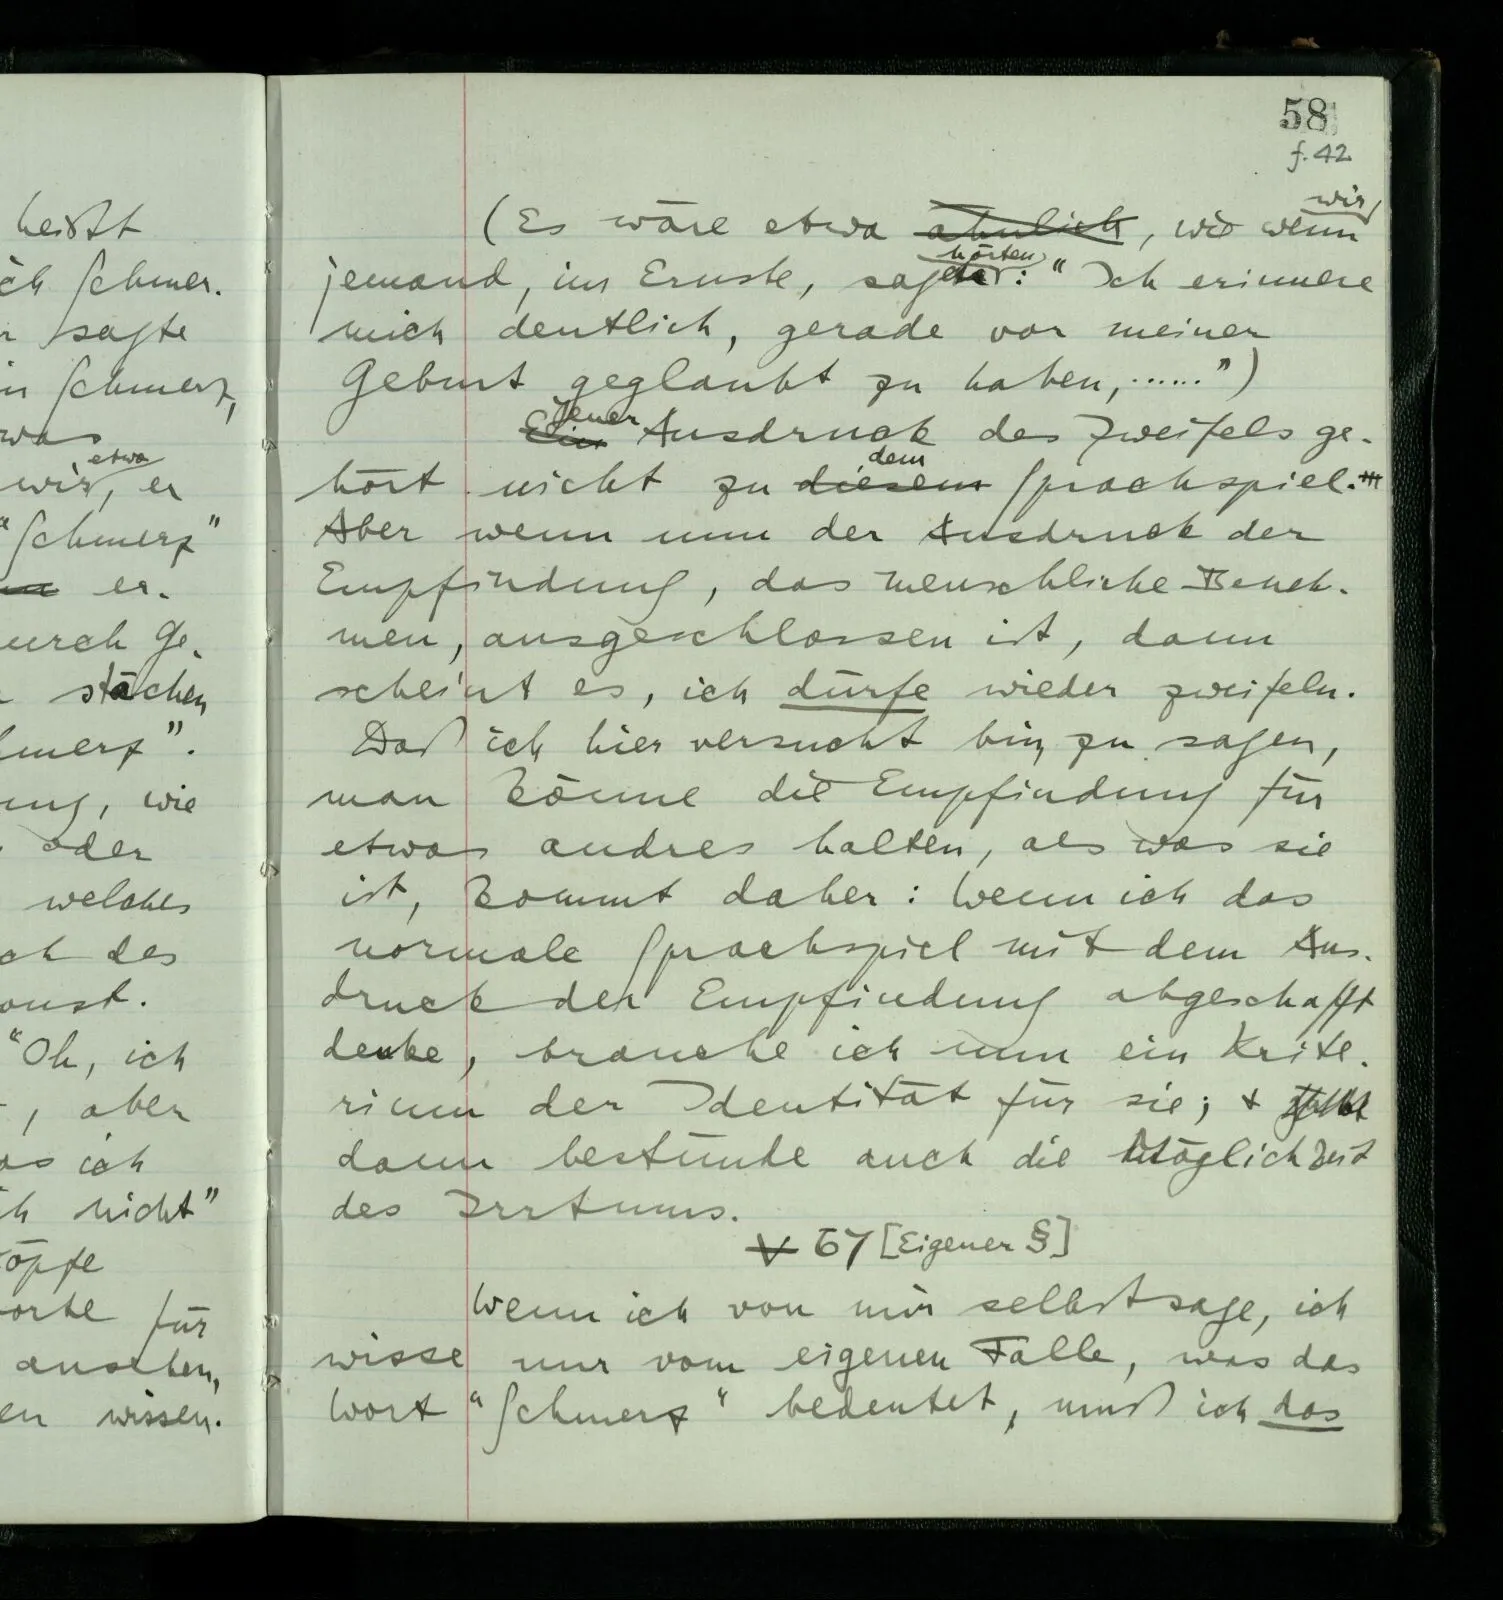 heißt
ich Schmer-
sagte
Schmerz,
was
etwa
wir, er
"Schmerz"
er-
durch Ge-
stächen
Schmerz".
wie
oder
welches
des
sonst.
"Oh, ich
, aber
was ich
ich nicht"
für
ansehen,
wissen.
58
f. 42
wir
(Es wäre etwa ähnlich, wie wenn
hörten
jemand, im Ernste, sagte: "Ich erinnere
mich deutlich, gerade vor meiner
Geburt geglaubt zu haben,......")
Jener
Ein Ausdruck des Zweifels ge-
dem
hört nicht zu diesem Sprachspiel.
Aber wenn nun der Ausdruck der
Empfindung, das menschliche Beneh-
men, ausgeschlossen ist, dann
scheint es, ich dürfe wieder zweifeln.
Daß ich hier versucht bin, zu sagen,
man könne die Empfindung für
etwas andres halten, als was sie
ist, kommt daher: Wenn ich das
normale Sprachspiel mit dem Aus-
druck der Empfindung abgeschafft
denke, brauche ich nun ein Krite-
rium der Identität für sie; +
dann bestünde auch die Möglichkeit
des Irrtums.
V 67 [Eigener §]
Wenn ich von mir selbst sage, ich
wisse nur vom eigenen Falle, was das
Wort "Schmerz" bedeutet, muß ich das